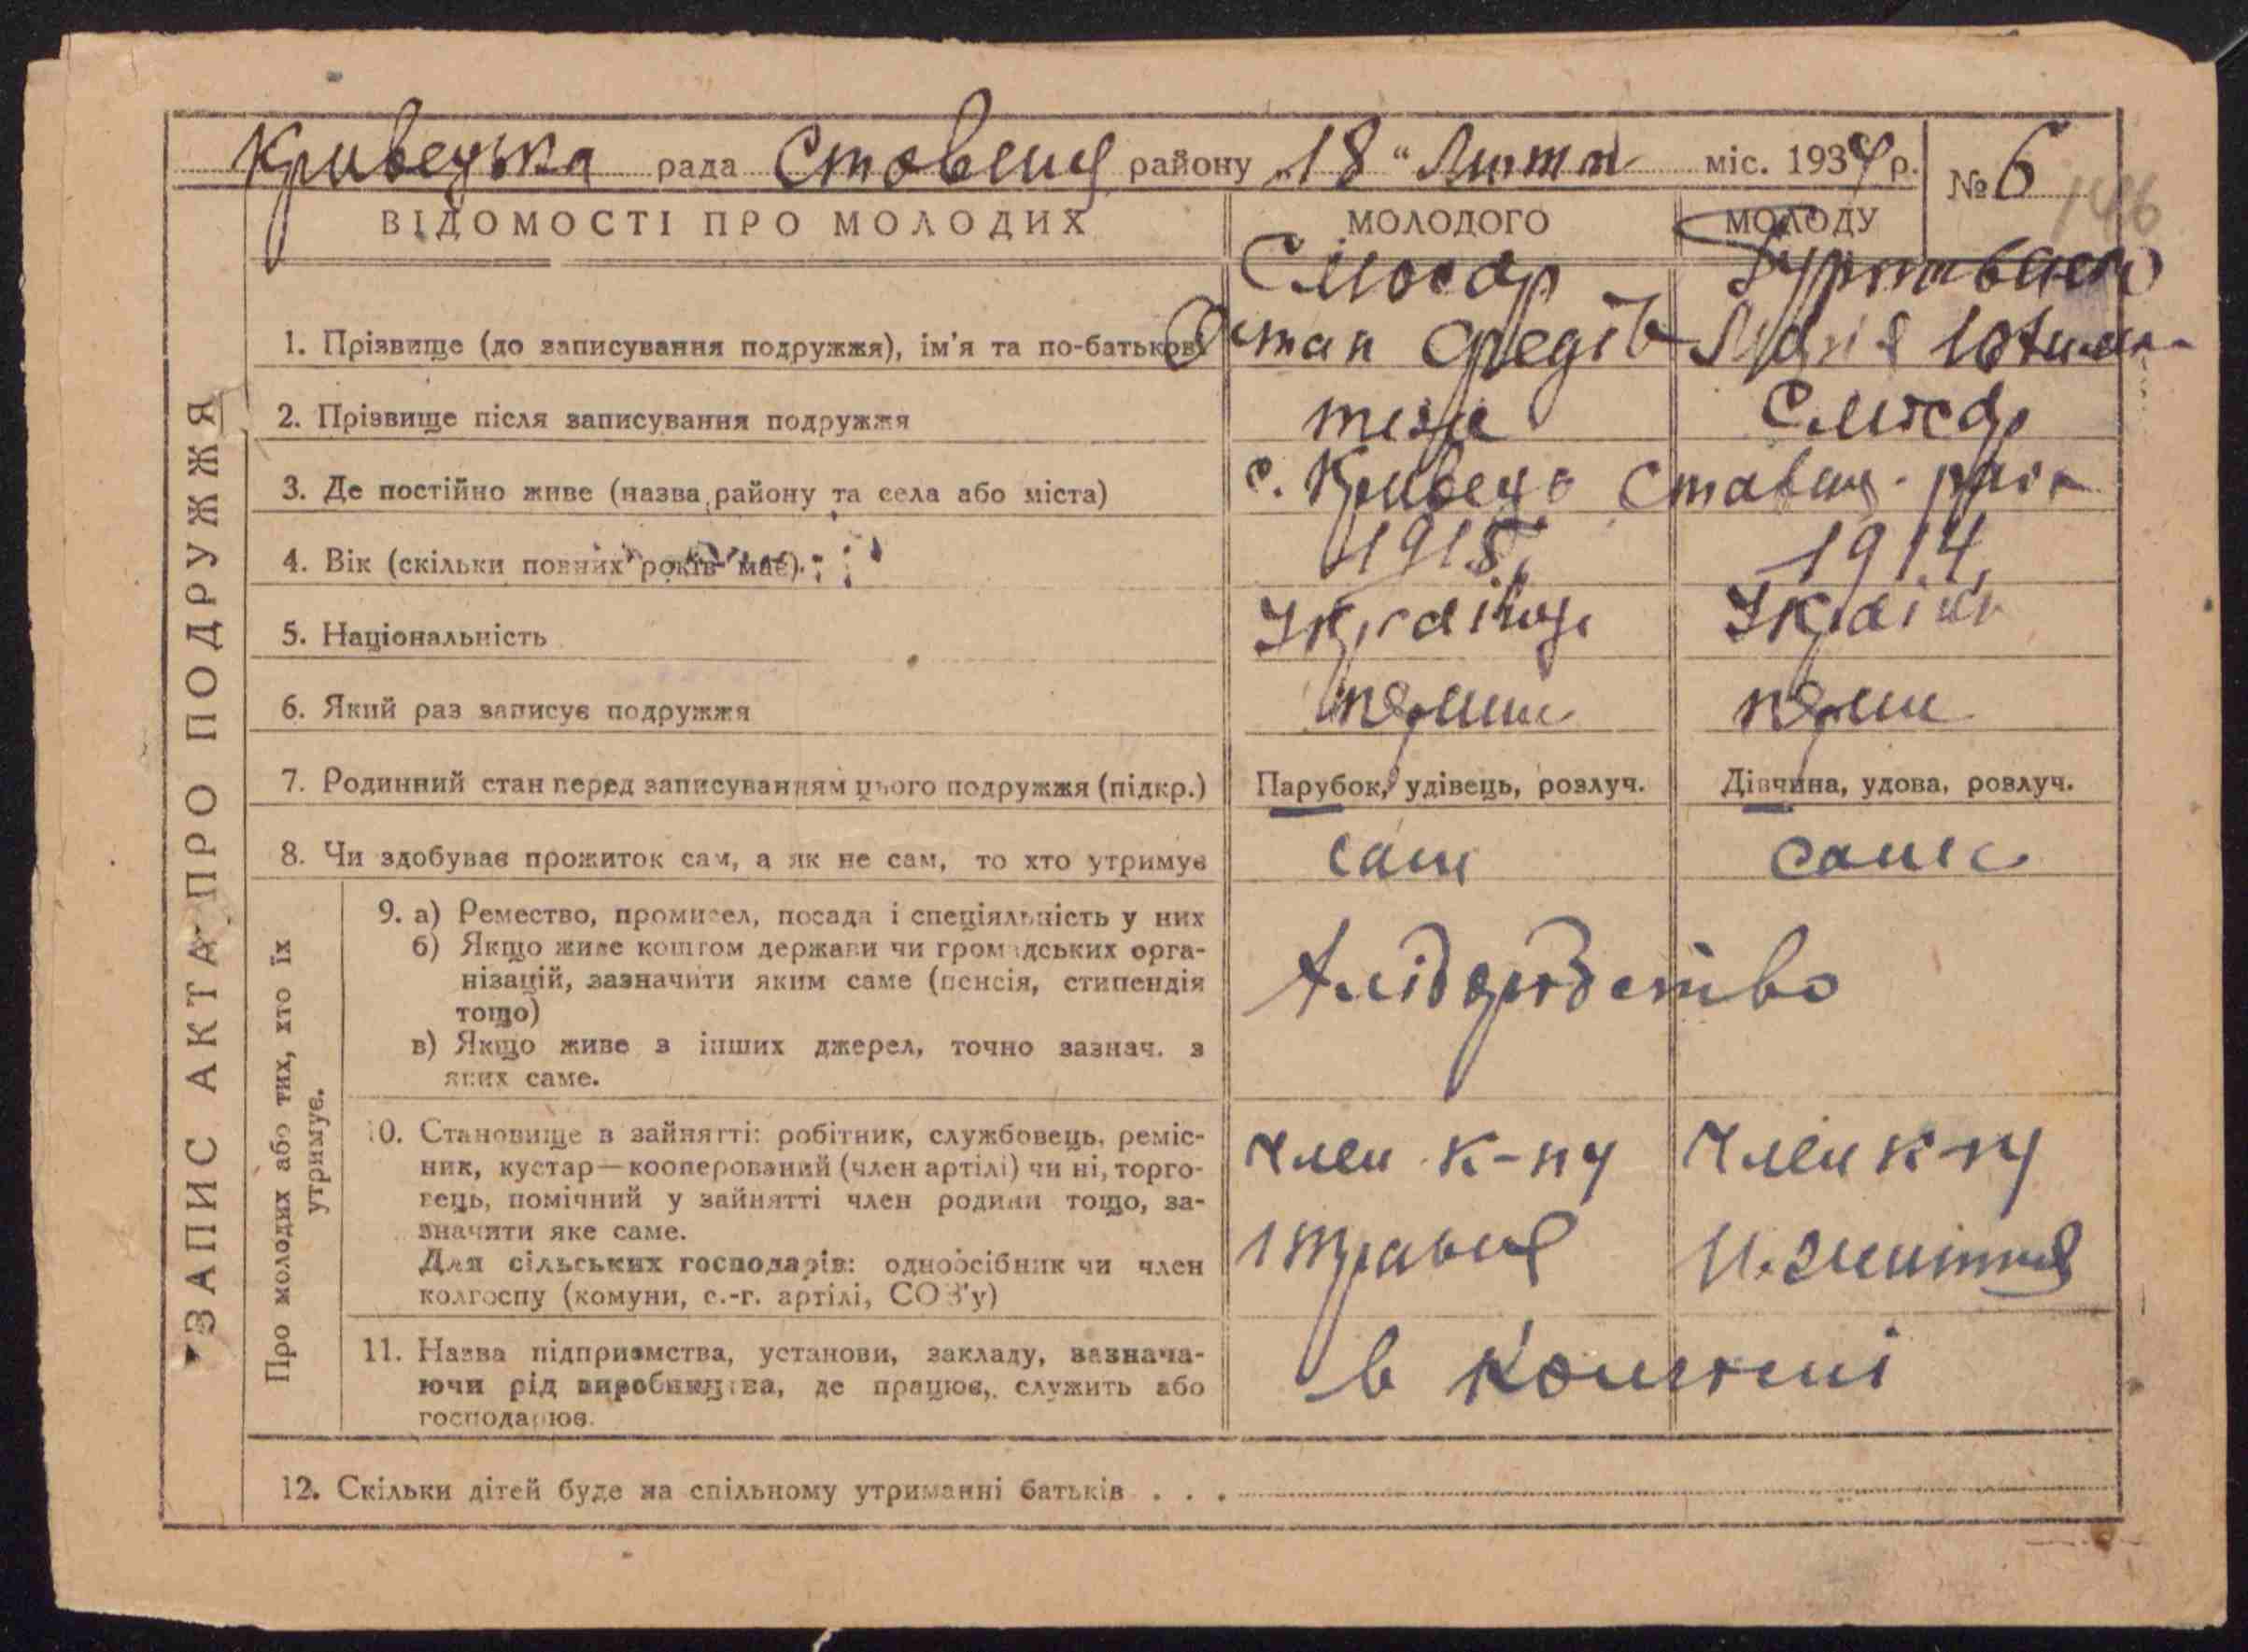 Кривецька рада Ставищ району „18“ Лютого міс. 1934 р. № 6
146
ВІДОМОСТІ ПРО МОЛОДИХ МОЛОДОГО МОЛОДУ
Слюсар
1. Прізвище (до записування подружжя), ім'я та по-батькові Остап Федів Лідія
2. Прізвище після записування подружжя теж Слюсар
3. Де постійно живе (назва району та села або міста) с. Кривець Ставищ. рай
4. Вік (скільки повних років має) 1915 1914
5. Національність Українець Україн
6. Який раз записує подружжя перши перши
7. Родинний стан перед записуванням цього подружжя (підкр.) Парубок, удівець, розлуч. Дівчина, удова, розлуч.
8. Чи здобуває прожиток сам, а як не сам, то хто утримує сам сама
9. а) Ремество, промисел, посада і спеціяльність у них
б) Якщо живе коштом держави чи громадських орга-
нізацій, зазначити яким саме (пенсія, стипендія
тощо)
Хліборобство
в) Якщо живе з інших джерел, точно зазнач. з
яких саме.
10. Становище в зайнятті: робітник, службовець, реміс-
ник, кустар—кооперований (член артілі) чи ні, торго-
вець, помічний у зайнятті член родини тощо, за-
значити яке саме.
Для сільських господарів: одноосібник чи член
колгоспу (комуни, с.-г. артілі, СОЗ'у)
Член к-пу Член к-пу
1 Травня
11. Назва підприємства, установи, закладу, зазнача-
ючи рід виробництва, де працює, служить або
господарює.
в
12. Скільки дітей буде на спільному утриманні батьків . . .
ЗАПИС АКТА ПРО ПОДРУЖЖЯ
Про молодих або тих, хто їх
утримує.